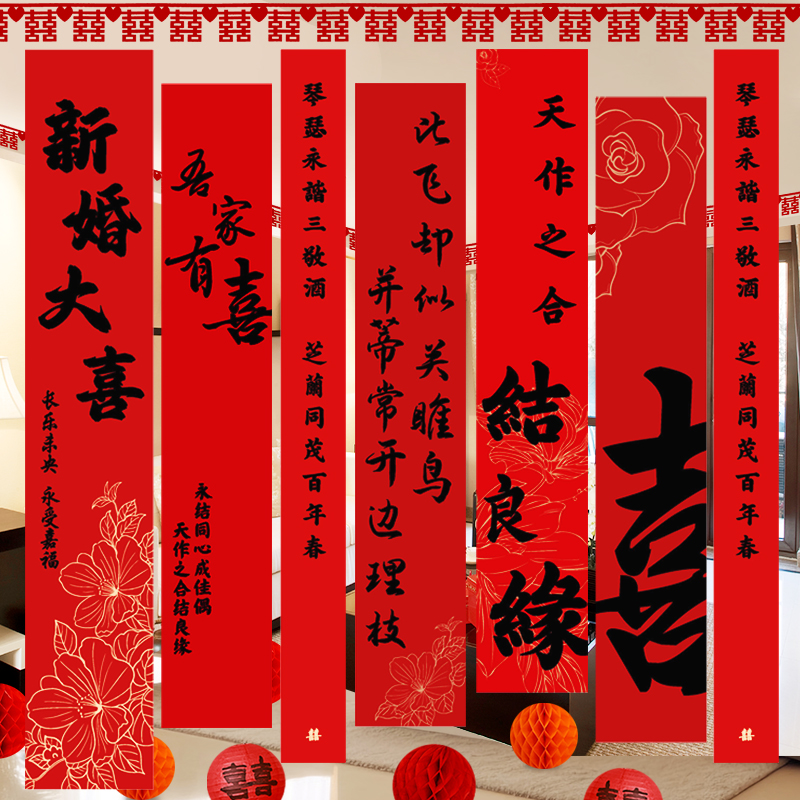 囍囍囍囍囍囍囍囍囍囍囍囍囍囍囍囍囍囍
新婚大喜
长乐未央 永受嘉福
吾家有喜
永结同心成佳偶
天作之合结良缘
琴瑟永諧三敬酒 芝蘭同茂百年春
囍
比飞却似关雎鸟
并蒂常开边理枝
天作之合
結良緣
喜
琴瑟永諧三敬酒 芝蘭同茂百年春
囍
囍
囍